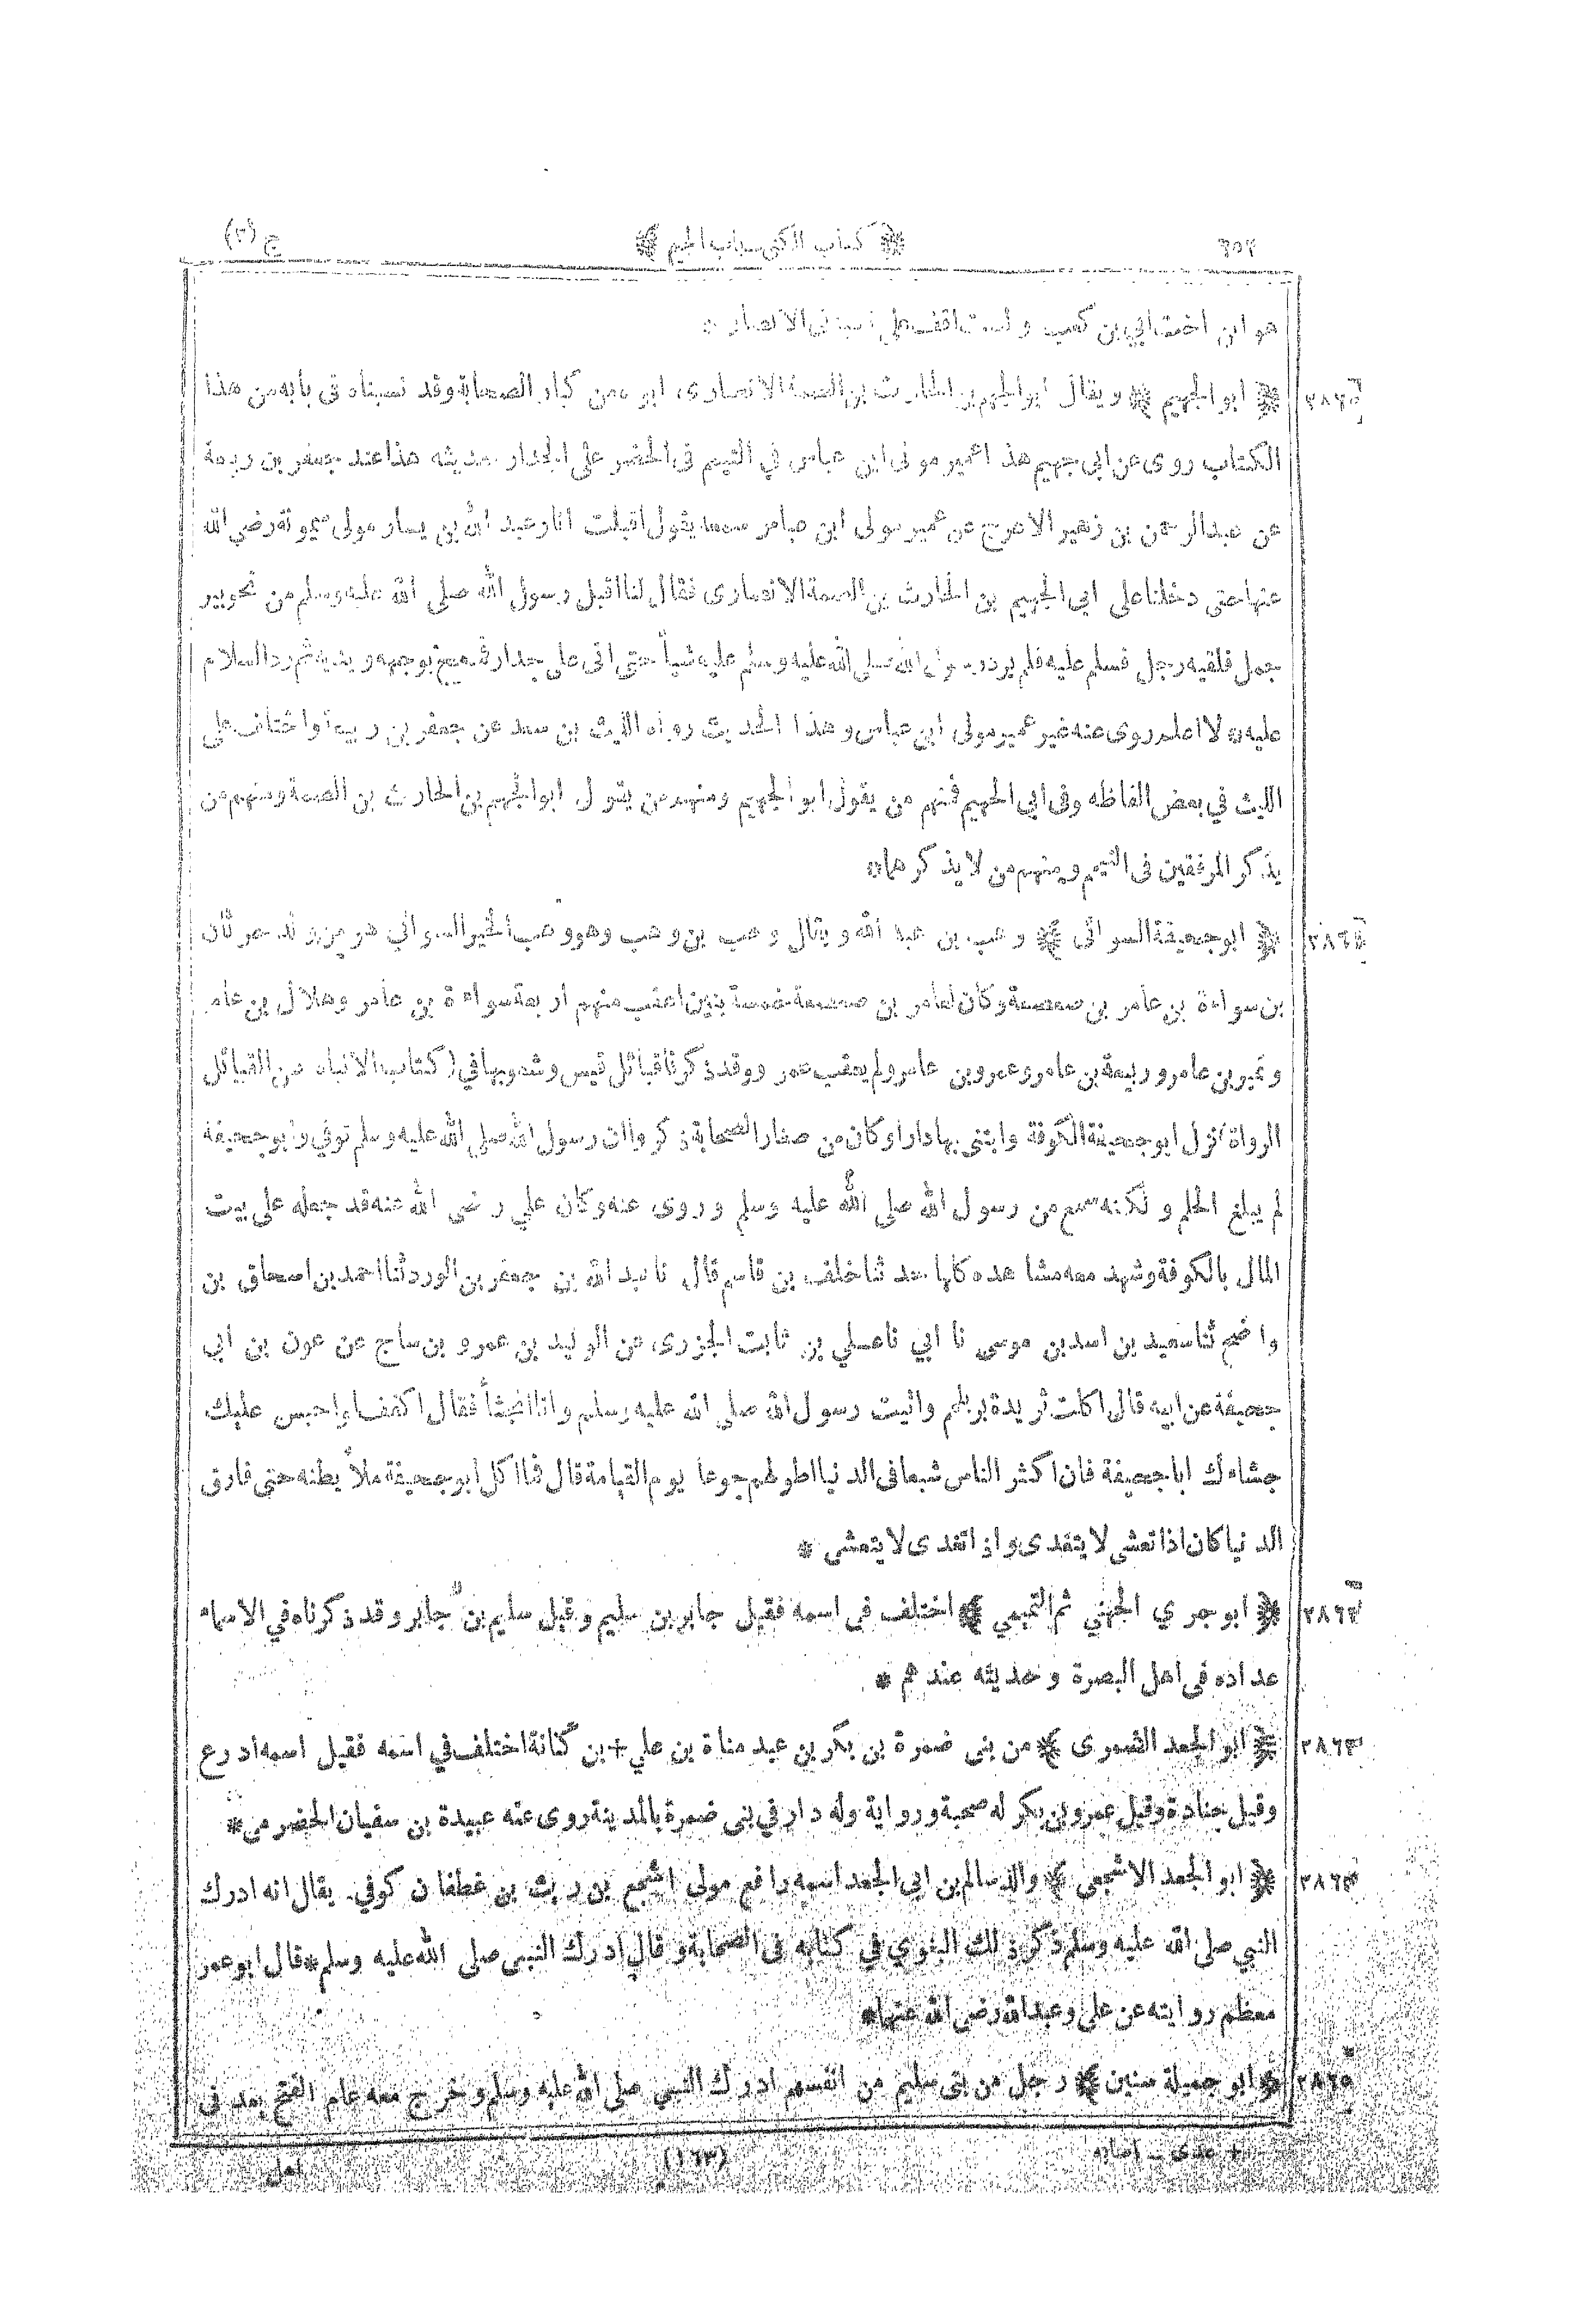 ﴿ كتاب الكنى ـ باب الجيم ﴾ ج (٢)
هو ابن اخت ابي بن كعب و لست اقف على نسبه فى الانصار *
﴿ ابو الجهيم ﴾ ويقال ابو الجهيم بن الحارث بن الصمة الانصارى، ابوه من كبار الصحابة وقد نسبناه فى بابه من هذا
الكتاب روى عن ابى جهيم هذا عمير مولى ابن عباس في التيمم فى الحضر على الجدار حديثه هذا عند جعفر بن ربيعة
عن عبد الرحمن بن زهير الاعرج عن عمير مولى ابن عباس سمعه يقول اقبلت انا وعبد الله بن يسار مولى ميمونة رضي الله
عنها حتى دخلنا على ابى الجهيم بن الحارث بن الصمة الانصارى فقال لنا اقبل رسول الله صلى الله عليه وسلم من نحو بير
جمل فلقيه رجل فسلم عليه فلم يرد رسول الله صلى الله عليه وسلم عليه شيأ حتى اتى على جدار فمسح بوجهه ويديه ثم رد السلام
عليه * لا اعلم روى عنه غير عمير مولى ابن عباس وهذا الحديث رواه الليث بن سعد عن جعفر بن ربيعة واختلف على
الليث في بعض الفاظه وفى ابى الجهيم فمنهم من يقول ابو الجهيم ومنهم من يقول ابو الجهم بن الحارث بن الصمة ومنهم من
يذكر المرفقين فى التيمم ومنهم من لا يذكرهما *
﴿ ابو جحيفة السوائى ﴾ وهب بن عبد الله ويقال وهب بن وهب وهو وهب الخير السوائي هو من ولد حرثان
بن سواءة بن عامر بن صعصعة وكان لعامر بن صعصعة خمسة بنين اعقب منهم اربعة سواءة بن عامر وهلال بن عامر
ونمير بن عامر وربيعة بن عامر وعمرو بن عامر ولم يعقب عمرو وقد ذكرنا قبائل قيس وشعوبها في (كتاب الانباه عن القبائل
الرواة) نزل ابو جحيفة الكوفة وابتنى بها دارا وكان من صغار الصحابة ذكروا ان رسول الله صلى الله عليه وسلم توفي وابو جحيفة
لم يبلغ الحلم ولكنه سمع من رسول الله صلى الله عليه وسلم وروى عنه وكان علي رضى الله عنه قد جعله على بيت
المال بالكوفة وشهد معه مشاهده كلها حدثنا خلف بن قاسم قال نا عبد الله بن جعفر بن الورد ثنا احمد بن اسحاق بن
واضح ثنا سعيد بن اسد بن موسى نا ابي نا علي بن ثابت الجزرى عن الوليد بن عمرو بن ساج عن عون بن ابي
جحيفة عن ابيه قال اكلت ثريدة بر بلحم واتيت رسول الله صلى الله عليه وسلم وانا اتجشأ فقال اكفف او احبس عليك
جشاءك ابا جحيفة فان اكثر الناس شبعا فى الدنيا اطولهم جوعا يوم القيامة قال فما اكل ابو جحيفة ملأ بطنه حتى فارق
الدنيا كان اذا تعشى لا يتغدى واذا تغدى لا يتعشى *
٢٨٦٢ ﴿ ابو جري الجهني ثم التميمي ﴾ اختلف فى اسمه فقيل جابر بن سليم وقيل سليم بن جابر وقد ذكرناه في الاسماء
عداده فى اهل البصرة وحديثه عندهم *
٢٨٦٣ ﴿ ابو الجعد الضمرى ﴾ من بنى ضمرة بن بكر بن عبد مناة بن علي + بن كنانة اختلف في اسمه فقيل اسمه ادرع
وقيل جنادة وقيل عمرو بن بكر له صحبة ورواية وله دار في بنى ضمرة بالمدينة روى عنه عبيدة بن سفيان الحضرمى *
٢٨٦٤ ﴿ ابو الجعد الاشجعى ﴾ والد سالم بن ابى الجعد اسمه رافع مولى اشجع بن ريث بن غطفان كوفي. يقال انه ادرك
النبي صلى الله عليه وسلم ذكر ذلك البغوي في كتابه فى الصحابة وقال ادرك النبى صلى الله عليه وسلم * قال ابو عمر
معظم روايته عن على وعبد الله رضى الله عنهما *
٢٨٦٥ ﴿ ابو جميلة سنين ﴾ رجل من بنى سليم من انفسهم ادرك النبى صلى الله عليه وسلم وخرج معه عام الفتح يعد فى
+ عدى ـ اصابه (١٦٣) اهل